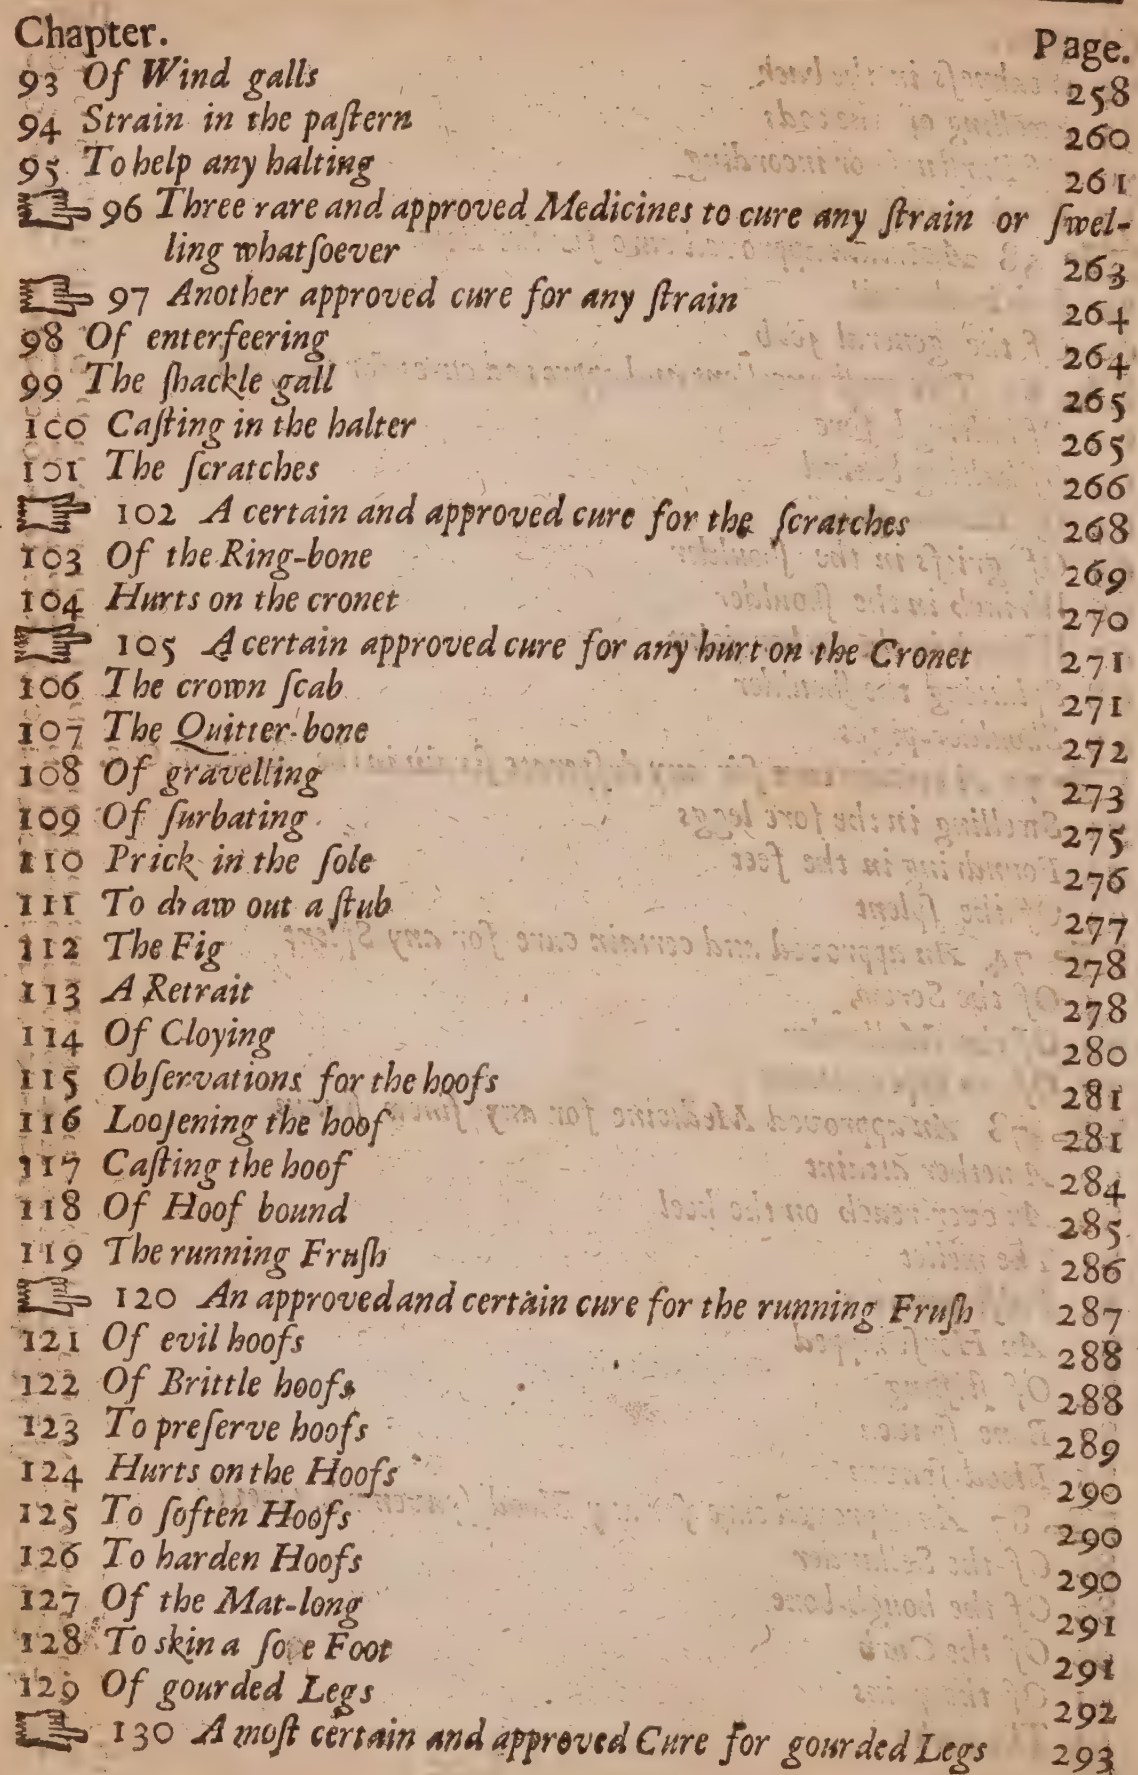 Chapter. Page.
93 Of Wind galls 258
94 Strain in the paſtern 260
95 To help any halting 261
☞ 96 Three rare and approved Medicines to cure any ſtrain or ſwel-
ling whatſoever 263
☞ 97 Another approved cure for any ſtrain 264
98 Of enterfeering 264
99 The ſhackle gall 265
100 Caſting in the halter 265
101 The ſcratches 266
☞ 102 A certain and approved cure for the ſcratches 268
103 Of the Ring-bone 269
104 Hurts on the cronet 270
☞ 105 A certain approved cure for any hurt on the Cronet 271
106 The crown ſcab 271
107 The Quitter-bone 272
108 Of gravelling 273
109 Of ſurbating 275
110 Prick in the ſole 276
111 To draw out a ſtub 277
112 The Fig 278
113 A Retrait 278
114 Of Cloying 280
115 Obſervations for the hoofs 281
116 Looſening the hoof 281
117 Caſting the hoof 284
118 Of Hoof bound 285
119 The running Fruſh 286
☞ 120 An approved and certain cure for the running Fruſh 287
121 Of evil hoofs 288
122 Of Brittle hoofs 288
123 To preſerve hoofs 289
124 Hurts on the Hoofs 290
125 To ſoften Hoofs 290
126 To harden Hoofs 290
127 Of the Mat-long 291
128 To skin a ſore Foot 291
129 Of gourded Legs 292
☞ 130 A moſt certain and approved Cure for gourded Legs 293